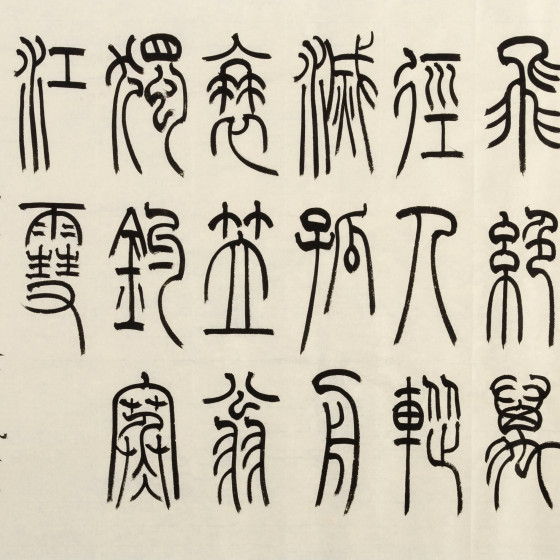 飛絕萬
徑人蹤
滅孤舟
蓑笠翁
獨釣寒
江雪